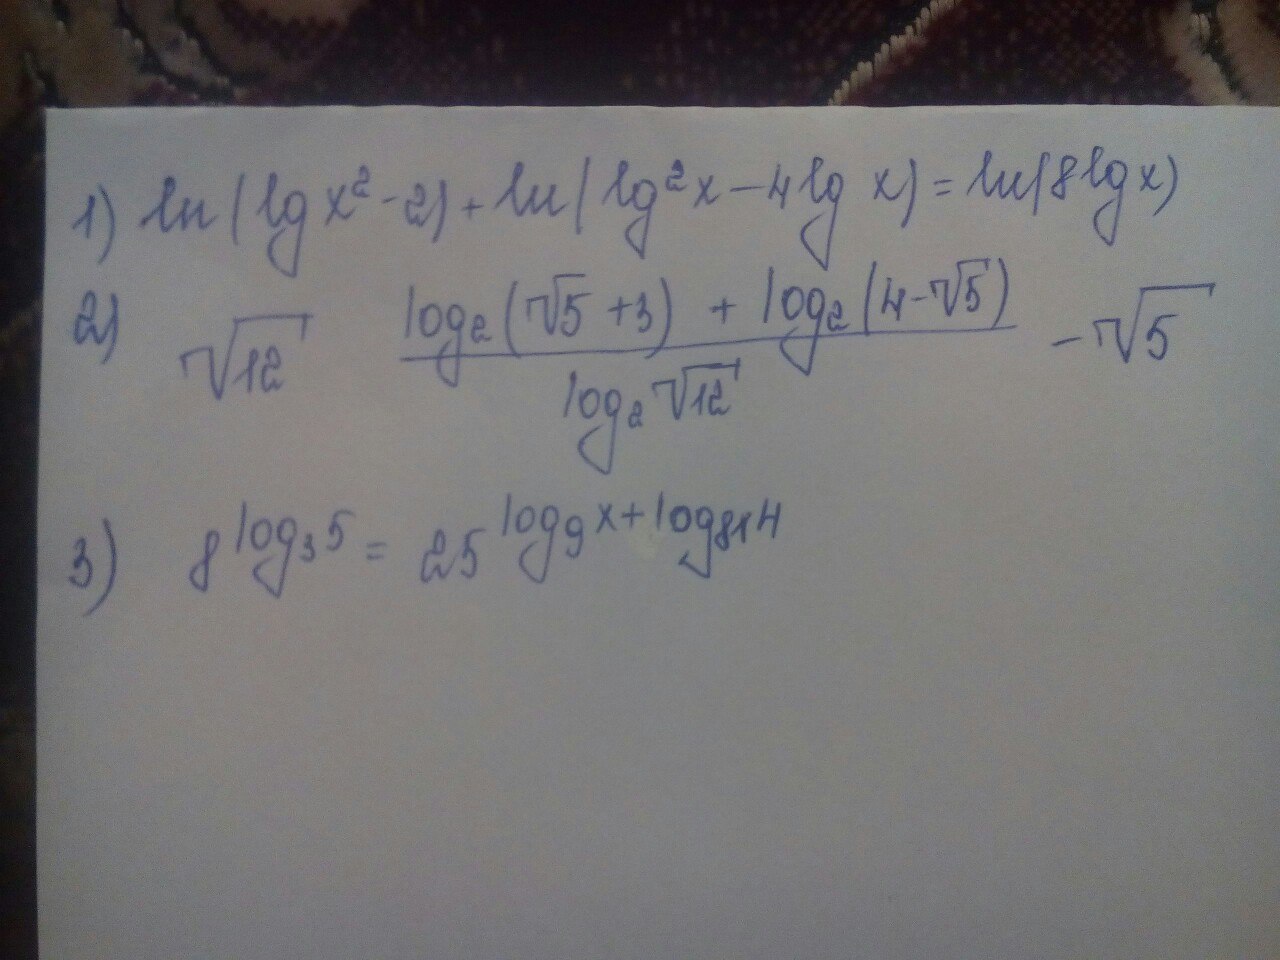 1) ln(lg x² - 2) + ln(lg²x - 4lg x) = ln(8lg x)
2) √12 (log₂(√5 + 3) + log₂(4 - √5)) / (log₂√12) - √5
3) 8^(log₃5) = 25^(log₉x + log₈₁4)